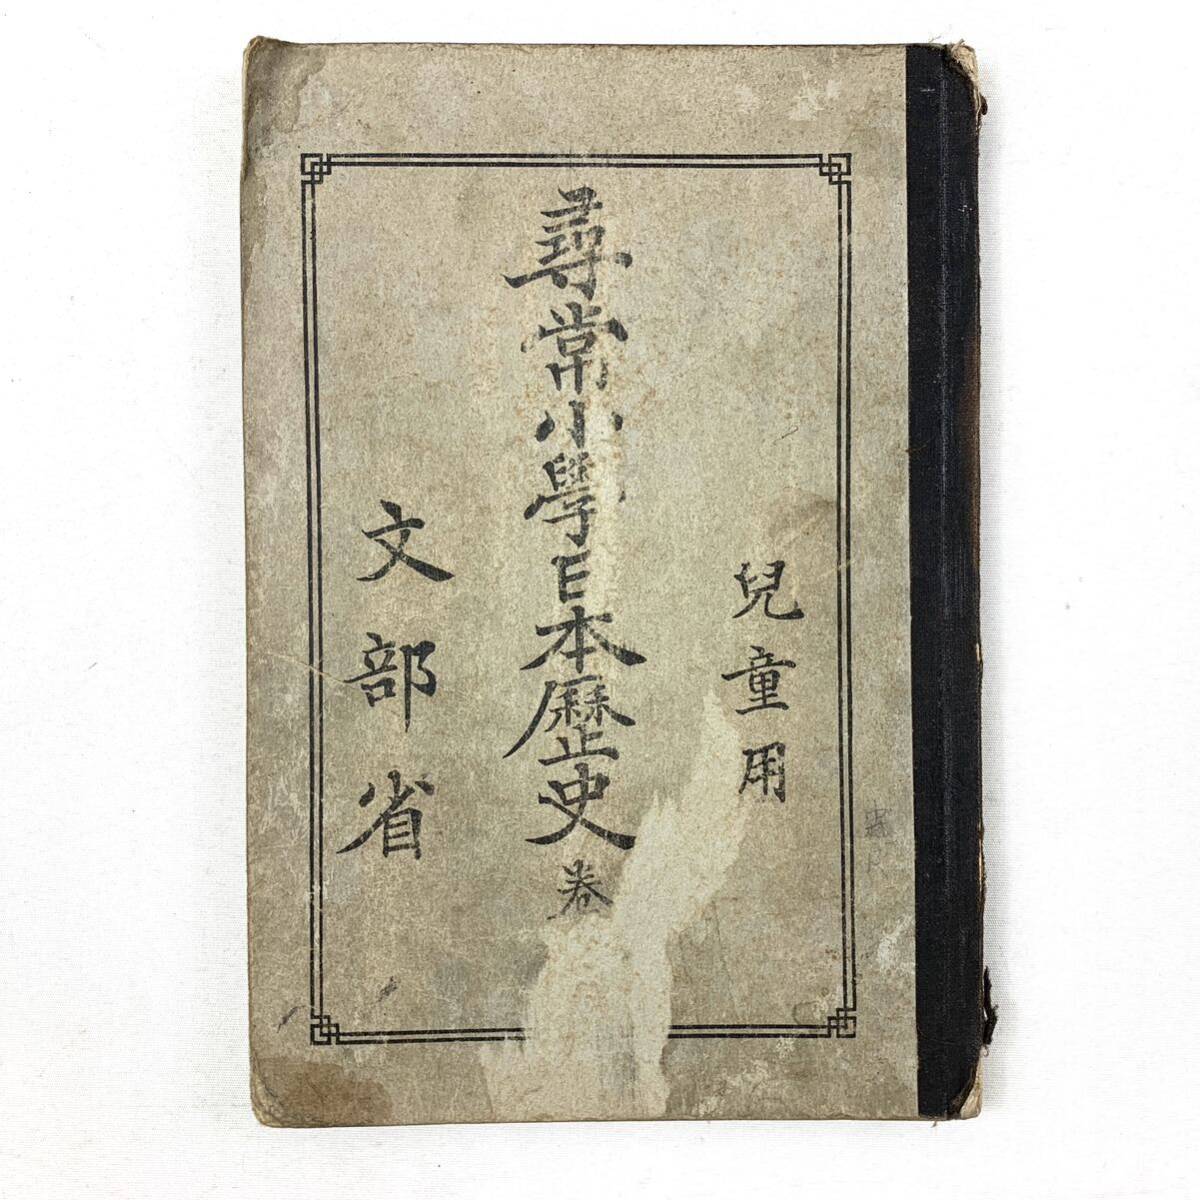 兒童用
尋常小學日本歷史 卷
文部省